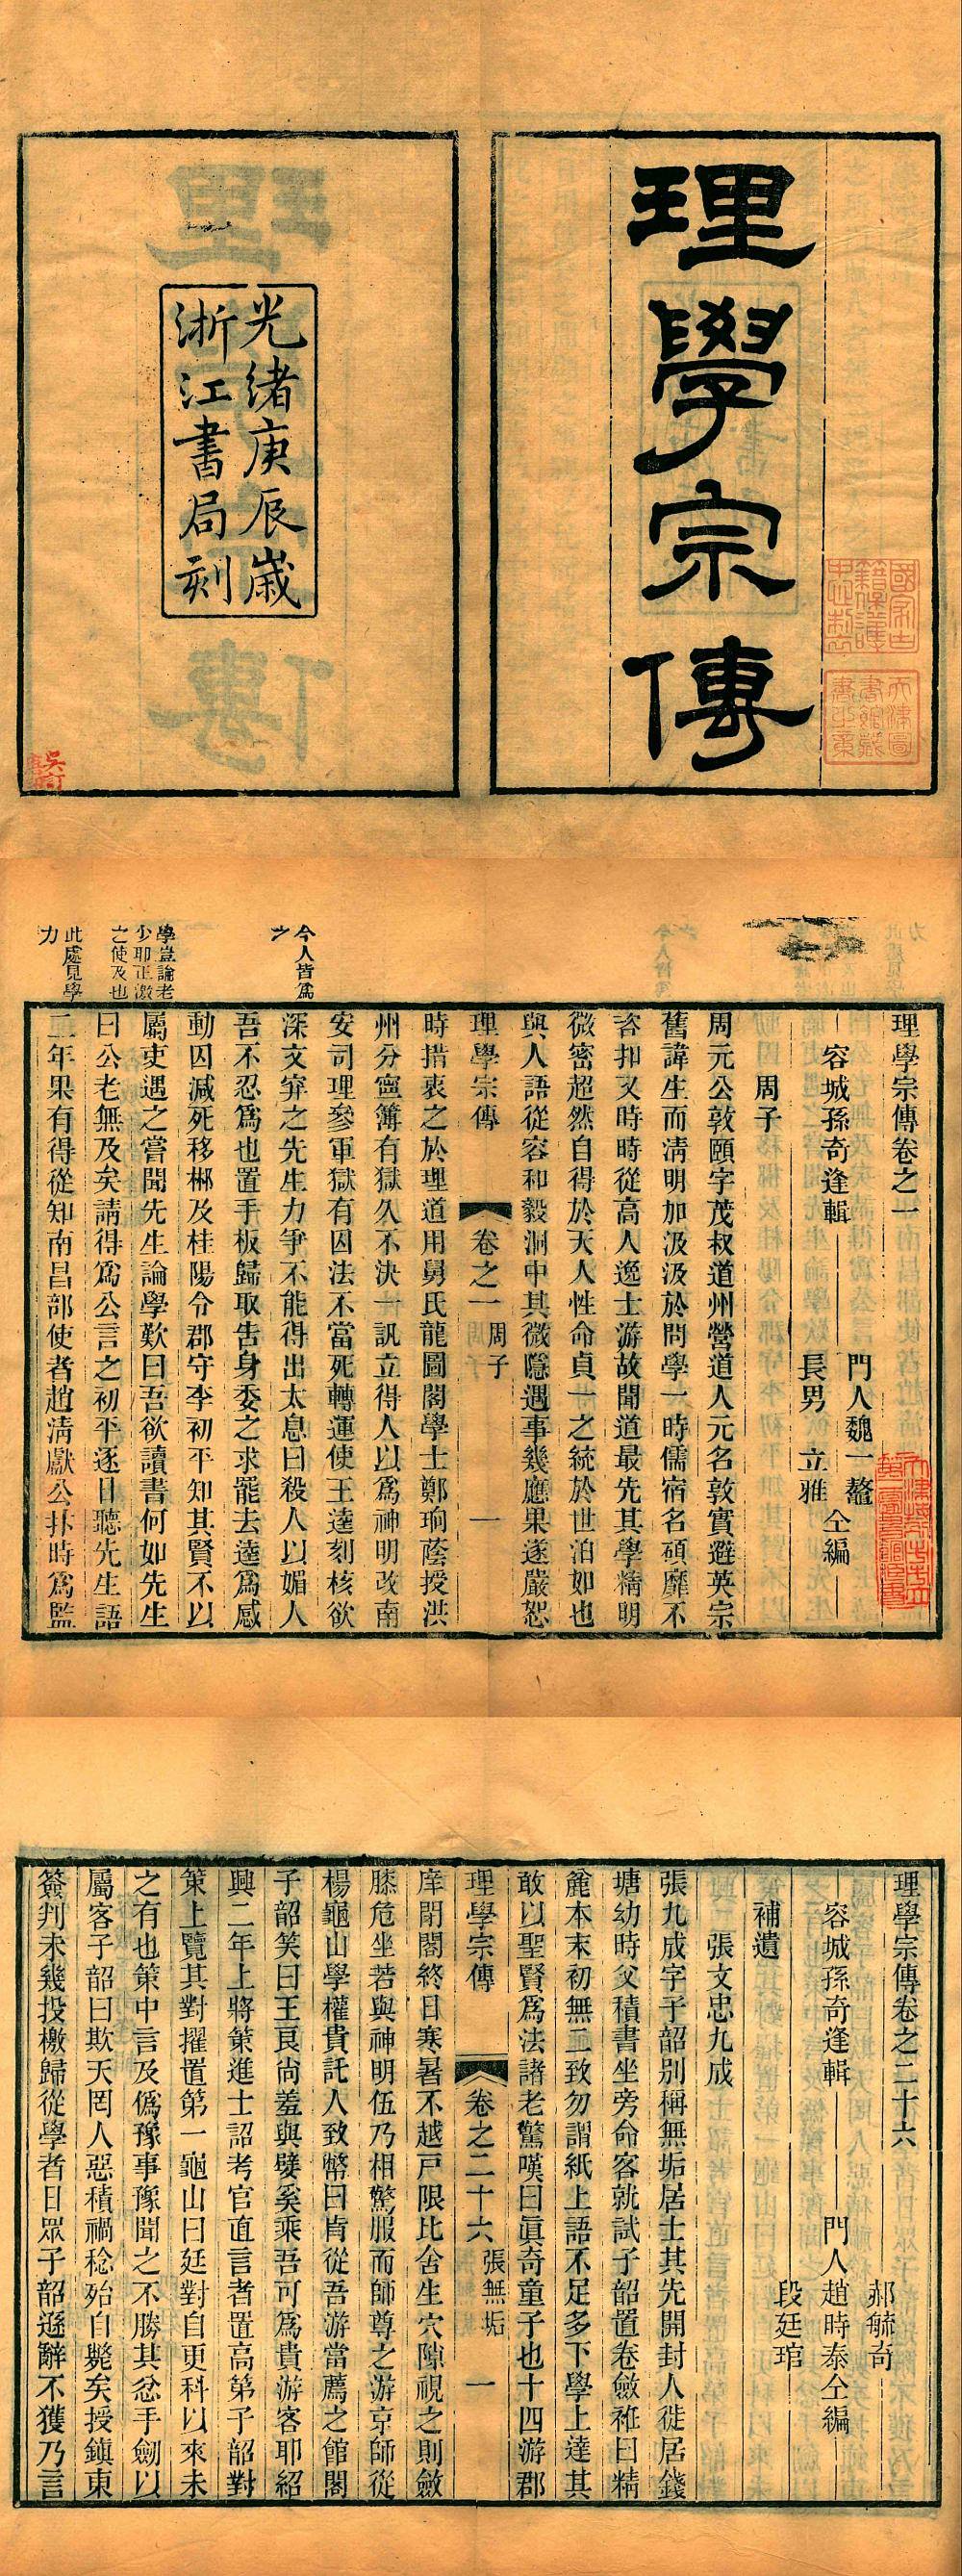 理學宗傳
光緒庚辰歲
浙江書局刻
理學宗傳卷之一
容城孫奇逢輯
門人魏一鼇
長男立雅
仝編
周子
周元公敦頤字茂叔道州營道人元名敦實避英宗
舊諱生而清明加汲汲於問學一時儒宿名碩靡不
咨扣又時時從高人逸士游故聞道最先其學精明
微密超然自得於天人性命貞一之統於世泊如也
與人語從容和毅洞中其微隱遇事幾應果遂嚴恕
理學宗傳 卷之一 周子 一
時措衷之於理道用舅氏龍圖閣學士鄭珦蔭授洪
州分寧簿有獄久不決一訊立得人以為神明改南
安司理參軍獄有囚法不當死轉運使王逵刻核欲
深文穽之先生力爭不能得出太息曰殺人以媚人
吾不忍為也置手板歸取告身委之求罷去逵為感
動囚減死移郴及桂陽令郡守李初平知其賢不以
屬吏遇之嘗聞先生論學歎曰吾欲讀書何如先生
曰公老無及矣請得為公言之初平逐日聽先生語
二年果有得從知南昌部使者趙清獻公抃時為監
今人皆為
少
學豈論老
少耶正激
之使及也
此處見學
力
理學宗傳卷之二十六
容城孫奇逢輯
郝毓奇
門人趙時泰仝編
段廷琯
補遺
張文忠九成
張九成字子韶別稱無垢居士其先開封人徙居錢
塘幼時父積書坐旁命客就試子韶置卷斂袵曰精
麄本末初無二致勿謂紙上語不足多下學上達其
敢以聖賢為法諸老驚嘆曰眞奇童子也十四游郡
理學宗傳 卷之二十六 張無垢 一
庠閉閣終日寒暑不越戸限比舍生穴隙視之則斂
膝危坐若與神明伍乃相驚服而師尊之游京師從
楊龜山學權貴託人致幣曰肯從吾游當薦之館閣
子韶笑曰王良尙羞與嬖奚乘吾可為貴游客耶紹
興二年上將策進士詔考官直言者置高第子韶對
策上覽其對擢置第一龜山曰廷對自更科以來未
之有也策中言及僞豫事豫聞之不勝其忿手劒以
屬客子韶曰欺天罔人惡積禍稔殆自斃矣授鎮東
簽判未幾投檄歸從學者日眾子韶遜辭不獲乃言